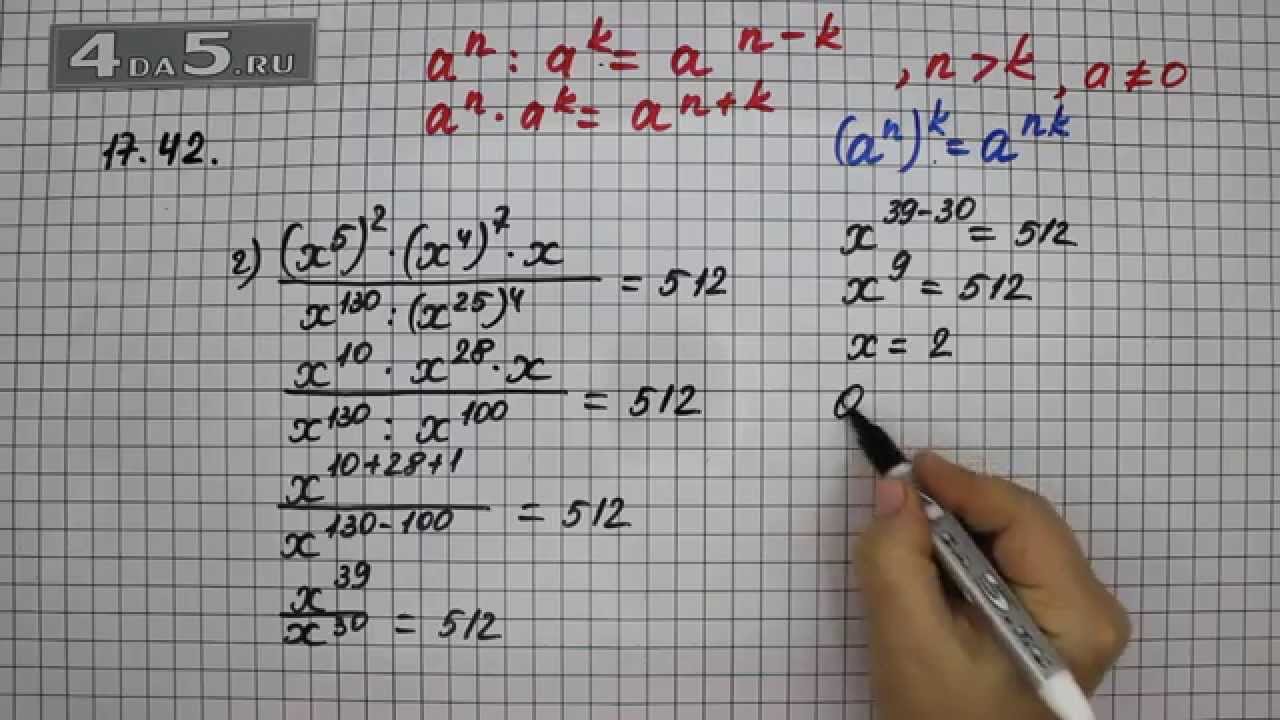 4DA5.RU
aⁿ : aᵏ = aⁿ⁻ᵏ , n > k , a ≠ 0
aⁿ · aᵏ = aⁿ⁺ᵏ
(aⁿ)ᵏ = aⁿᵏ
17.42.
г) ((x⁵)² · (x⁴)⁷ · x) / (x¹³⁰ : (x²⁵)⁴) = 512
(x¹⁰ · x²⁸ · x) / (x¹³⁰ : x¹⁰⁰) = 512
x¹⁰⁺²⁸⁺¹ / x¹³⁰⁻¹⁰⁰ = 512
x³⁹ / x³⁰ = 512
x³⁹⁻³⁰ = 512
x⁹ = 512
x = 2
О